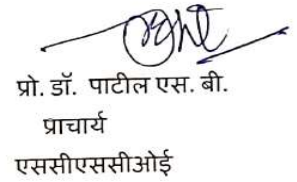 प्रो. डॉ. पाटील एस. बी.
प्राचार्य
एससीएससीओई